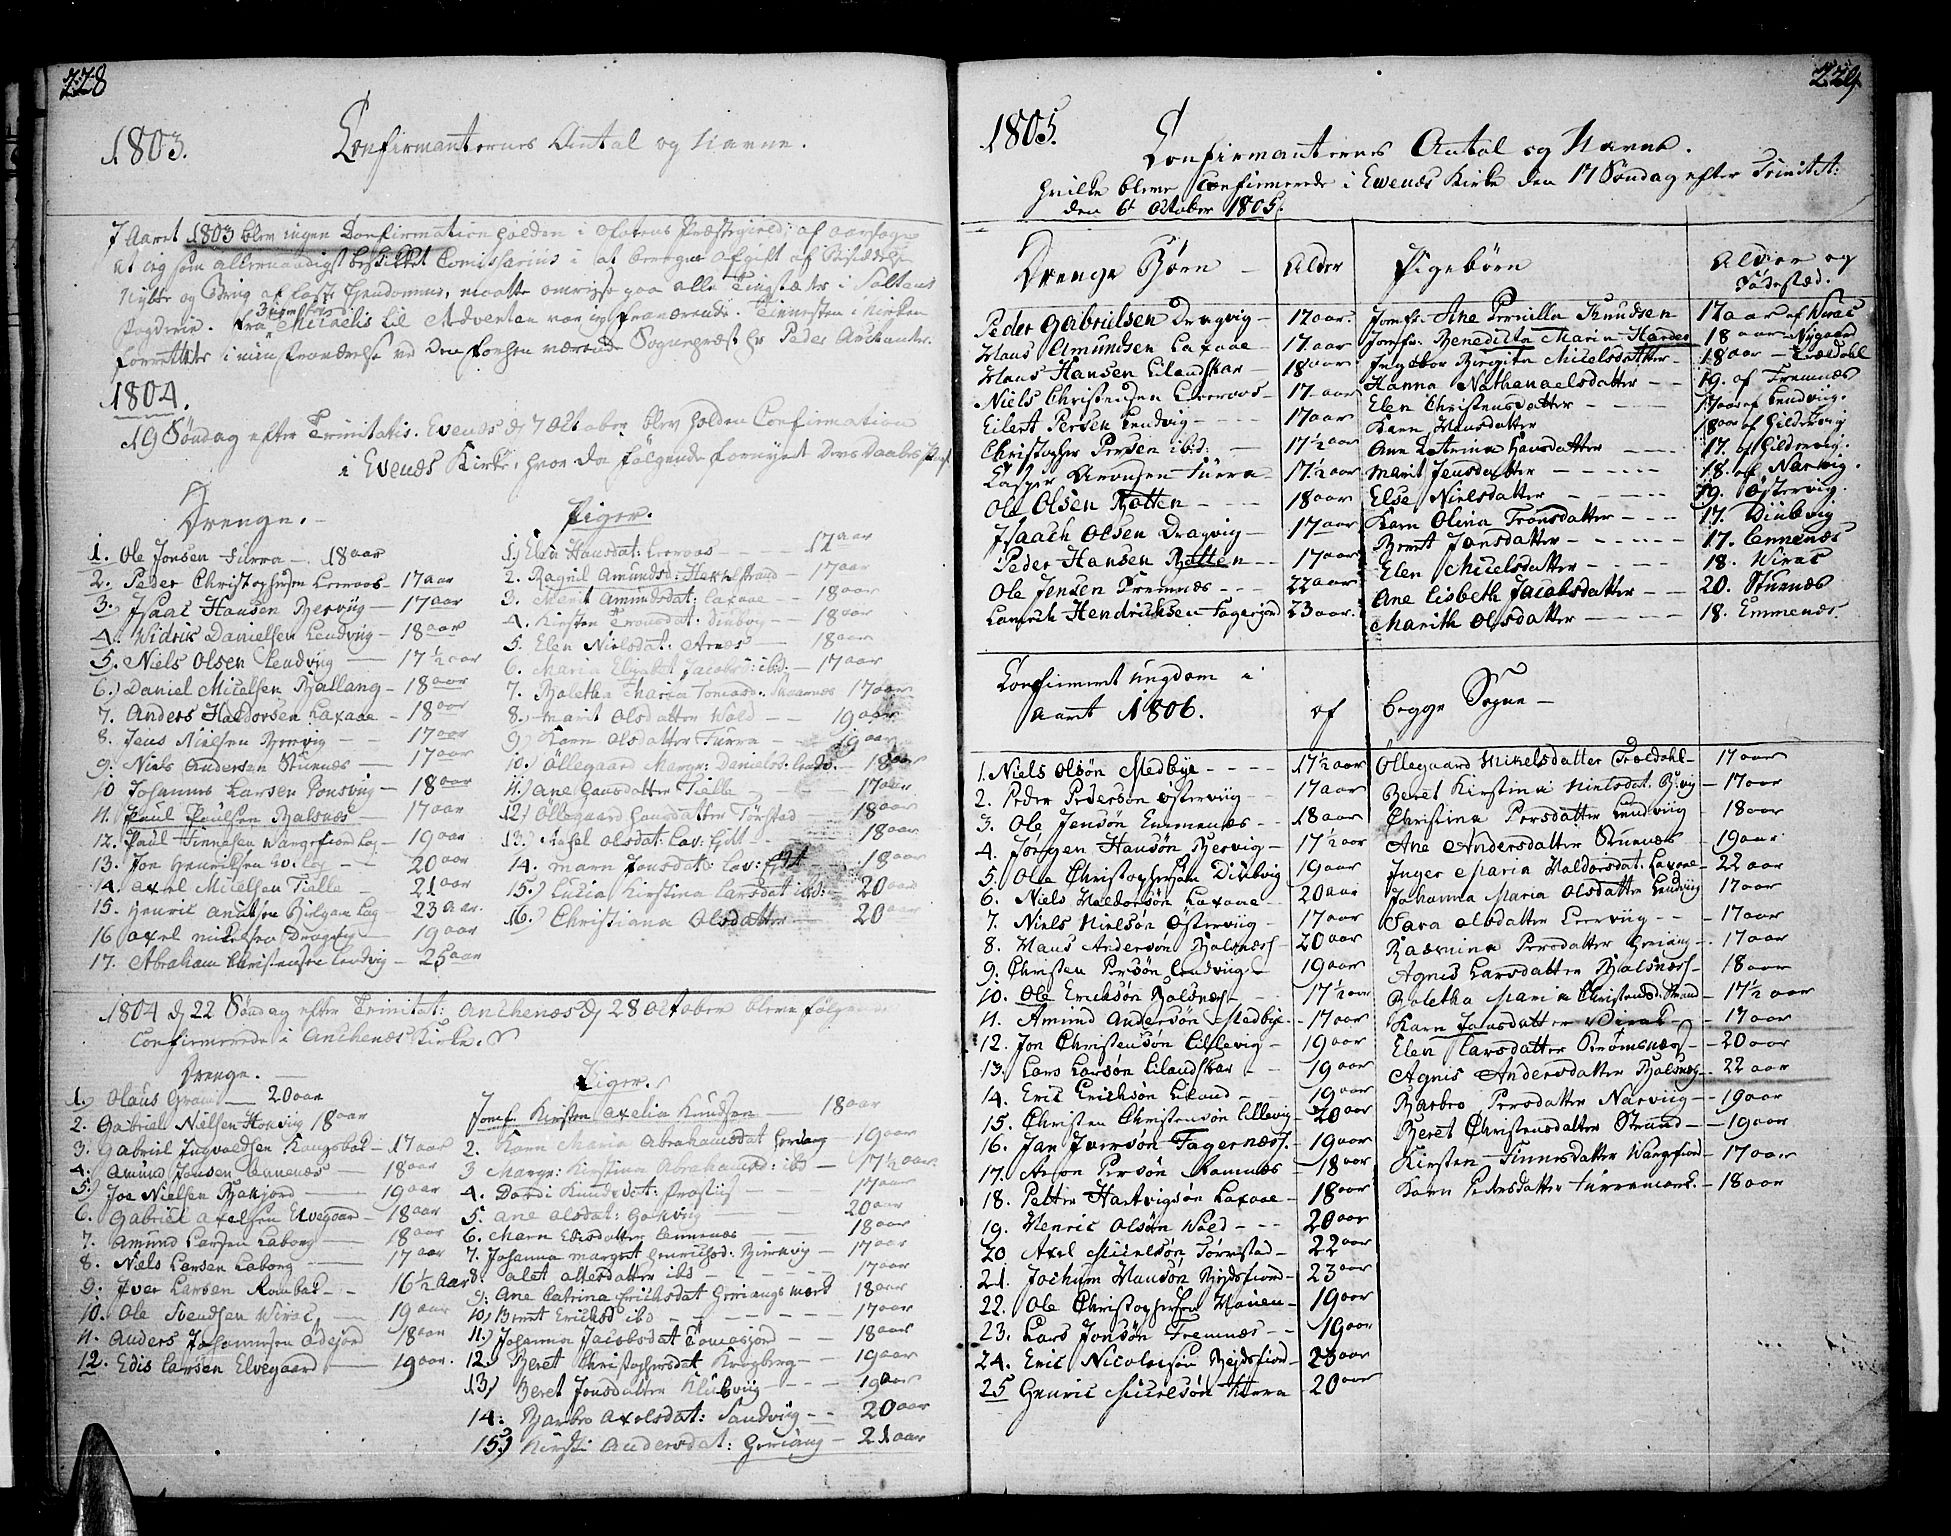 228
1803.
Confirmanternes Antal og Navne.
I Aaret 1803 blev ingen Confirmation holden i Ofotens Præstegield; af aarsage
at jeg som allernaadigst beskikket Comissarius i at beregne Afgift af
Nytte og Brug af faste Eiendomme, maatte omreise paa alle Tingstæder i Saltens
Fogderie. fra Michaelis til Adventen var jeg fraværende. Tienesten i Kirken
forrettede i min fraværelse
1804.
19 Søndag efter Trinitatis. Evenæs d 7 October blev holden Confirmation
i Evenæs Kirke, hvor da følgende fornyede Deres Daabes Pagt
Drenge.
1. Ole Jonsen Furra 18 aar
2. Peder Christophersen Leeraas 17 aar
3. Isaac Hansen Bervig 17 aar
4. Widrik Danielsen Lendvig 18 aar
5. Niels Olsen Lendvig 17 ½ aar
6. Daniel Micelsen Ballang 18 aar
7. Anders Haldorsen Laxaae 18 aar
8. Jens Nielsen Bervig 17 aar
9. Niels Andersen Stunæs 17 aar
10 Johannes Larsen Ponsvig 18 aar
11. Paul Paulsen Balsnæs 17 aar
12. Paul Finnesen Wargefiord Lap 19 aar
13. Jon Henriksen 20 aar
14. Axel Micelsen Tielle 21 aar
15. Henric 23 aar.
16 Axel Mikelsen Dragvig 19 aar
17. Abraham Christensen Lendvig 25 aar
Piger.
1) Elen Hansdat: Leeraas 17 aar
2. Ragnil Amundsd: 17 aar
3. Marit Amundsdat: Laxaae 18 aar
4. Kirsten Tronsdat: Diubvig 18 aar
5. Elen Nielsdat: Arnæs 18 aar
6. Maria Elisabet Jacobsd: ibd. 17 aar
7. Boletha Maria Tomasd: 17 aar
8. Marit Olsdatter Wold 19 aar
9) Karn Olsdatter Furra 19 aar
10. Øllegaard Margr: Danielsd: 18 aar
11) Ane Hansdatter Tielle 17 aar
12) Øllegaard Hansdatter Tørstad 18 aar
13. Olsdat: 18 aar
14. Marn Jonsdat: 18 aar
15) Lucia Kirstina Larsdat ibd: 20 aar
16. Christiana Olsdatter 20 aar
1804 d 22 Søndag efter Trinitat: Anchenæs d 28 October bleve følgende
Confirmerede i Anchenæs Kirke.
Drenge.
1. Olaus Gram 20 aar
2. Gabriel Nielsen Honvig 18 aar
3. Gabriel Ingvaldsen Kongsbak 17 aar
4. Amund Jonsen Lænnenæs 18 aar
5) Joe Nielsen 19 aar
6. Gabriel Axelsen Elvegaard 18 aar
7. Amund Larsen Laborg 18 aar
8. Niels Larsen Laborg 17 aar
9. Iver Larsen Rombak 16 ½ Aar
10. Ole Svendsen Wirac 19 aar
11. Anders Johannesen 18 aar
12. Edis Larsen Elvegaard 19 aar.
Piger.
Jomf. Kirsten Axelia Knudsen 18 aar
2. Karn Maria Abrahamsdat Heriang 19 aar
3 Margr: Kirstina Abrahamsd: ibd 17 ½ aar.
4. Dordi Knudsdat: 17 aar
5. Ane Olsdat: 20 aar
6. Marn Edisdatter Lænnenæs 18 aar
7. Johanna Margret Henrichsd: Biervig 17 aar
8. Alet Altesdatter ibd 17 aar
9: Ane Catrina Erichsdat Heriangs mark 18 aar
10) Beret Ericksd ibd 17 aar
11) Johanna Jacobsdat 18 aar
12. Beret Christophersdat 19 aar
13) Beret Jonsdatter Klubvig 19 aar
14: Barbro Axelsdat: Sandvig 20 aar
15) Kirsti Andersdat: Heriang 21 aar
229
1805.
Confirmanternes Antal og Navne.
Hvilke bleve Confirmerede i Evenæs Kirke den 17 Søndag efter Trinitat:
den 6t October 1805.
Drenge Børn Alder Pigebørn Alder og
Fødested.
Peder Gabrielsen Dragvig 17 aar. Jomfr: Ane Pernilla Knudsen 17 aar af Wirac
Hans Amundsen Laxaae 17 aar Jomfr: Benedicta Maria Harder 18 aar Nygaard
Hans Hansen Elandskar 18 aar Ingebor Birgita Micelsdatter 18 aar Trældahl
Niels Christensen Leeraas 17 aar Hanna Nathanaelsdatter 19. af Fremnæs
Eilert Persen Lendvig 17 aar Elen Christensdatter 17 aar af Lendviig.
Christopher Persen ibid: 17 ½ aar Karn Hansdatter 18 aar af Gildervig
Casper Aronsen Furra 17 ½ aar Ane Catrina Hansdatter 17. af Gildervig.
Ole Olsen Botten 18 aar Marit Jensdatter 18. af Narvig.
Isaach Olsen Dragvig 17 aar Else Nielsdatter 19. Østervig.
Peder Hansen Botten 17 aar Karn Olina Tronsdatter 17. Diubvig
Ole Jensen Fremnæs 22 aar Beret Jonsdatter 17. Lennenæs
Lavrich Hendrichsen Fagerjord 23 aar. Elen Micelsdatter 18. Wirac
Ane Lisbeth Jacobsdatter 20. Stunæs
Marith Olsdatter 18. Emmenæs.
Confirmeret ungdom i
Aaret 1806. af begge Sogne
1. Niels Olsøn Medbye 17 ½ aar Øllegaard Mikelsdatter Trældahl 17 aar
2. Peder Pedersøn Østerviig 17 aar Beret Kirstina Nielsdat. B:vig 17 aar
3. Ole Jensøn Emmenæs 18 aar Christina Persdatter Lendviig 18 aar
4. Jørgen Hansøn Bervig 17 ½ aar Ane Andersdatter Stunæs 19 aar
5. Ole Christophersøn Diubvig 19 aar Inger Maria Haldorsdat: Laxaae 22 aar
6. Niels Haldorsøn Laxaae 20 aar Johanna Maria Olsdatter Lendviig 17 aar
7. Niels Nielsøn Østerviig 17 aar Sara Olsdatter Leerviig 17 aar
8. Hans Andersøn Balsnæs 20 aar Persdatter Heriang 17 aar
9. Christen Persøn Lendviig 19 aar Agnis Larsdatter Balsnæs 18 aar
10. Ole Ericksøn Balsnæs 17 ½ aar Boletha Maria Christensd: Strand 17 ½ aar
11. Amund Andersøn Medbye 17 aar Karn Jonsdatter Wirac 17 aar
12. Jon Christensøn Lillevig 19 aar Elen Larsdatter Strømsnæs 20 aar
13. Lars Larsøn Elandskar 19 aar Agnis Andersdatter Balsnæs 22 aar
14. Eric Ericksøn Liland 19 aar Barbro Persdatter Narviig 19 aar
15. Christen Christensøn Lillevig 20 aar Beret Christensdatter Strand 19 aar
16. Jan Iversøn Fagernæs. 19 aar Kirsten Finnesdatter Wargfiord 17 aar
17. Aron Persøn Ramnæs 18 aar Karn Pedersdatter Furremark. 18 aar
18. Petter Hartvigsøn Laxaae 18 aar
19. Henric Olsøn Wold 20 aar
20 Axel Micelsøn Tørrstad 22 aar
21. Jochum Hansøn Bejdsfiord 23 aar
22. Ole Christophersøn Hauen 19 aar
23. Lars Jonsøn Fremnæs 19 aar
24. Eric Nicolaisøn Bejdsfiord 23 aar
25 Henric Micelsøn 20 aar